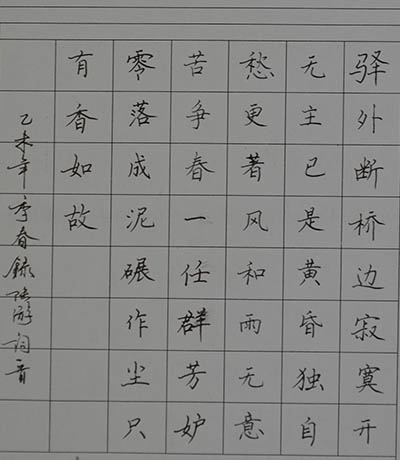 驿外断桥边寂寞开
无主已是黄昏独自
愁更著风和雨无意
苦争春一任群芳妒
零落成泥碾作尘只
有香如故
乙未年季春録陸游词一首